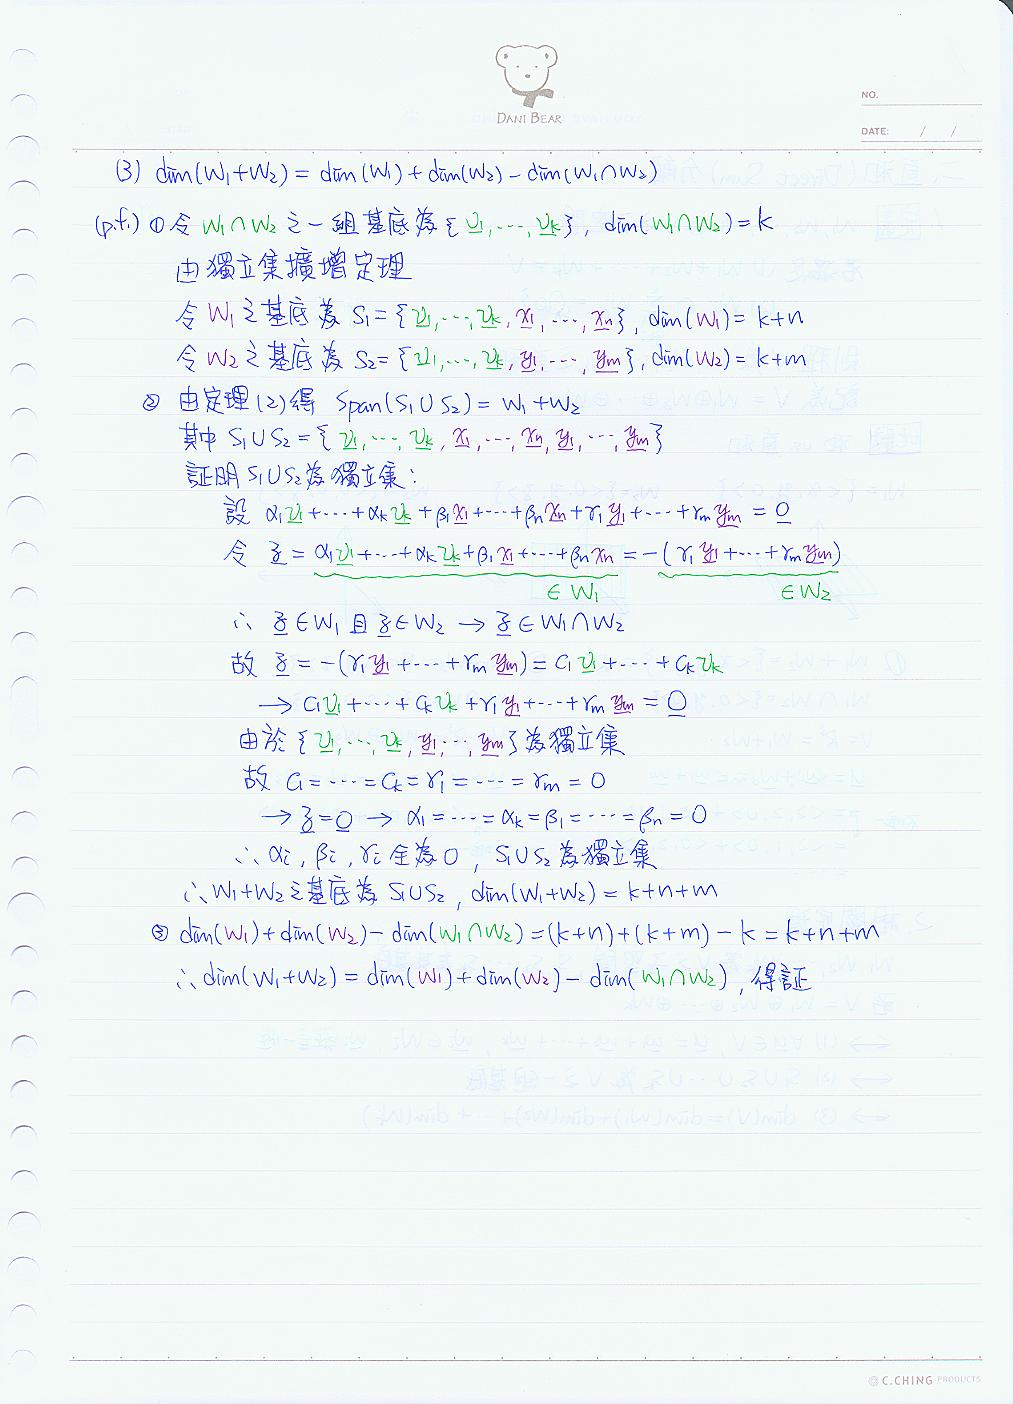 DANI BEAR
NO.
DATE: / /
(3) dim(W₁+W₂) = dim(W₁)+dim(W₂)-dim(W₁∩W₂)
(p.f.) ① 令 W₁∩W₂ 之一組基底為 {v₁,…,vₖ}, dim(W₁∩W₂)=k
由獨立集擴增定理
令 W₁之基底為 S₁={v₁,…,vₖ,x₁,…,xₙ}, dim(W₁)=k+n
令 W₂之基底為 S₂={v₁,…,vₖ,y₁,…,yₘ}, dim(W₂)=k+m
② 由定理(2)得 span(S₁∪S₂)=W₁+W₂
其中 S₁∪S₂={v₁,…,vₖ,x₁,…,xₙ,y₁,…,yₘ}
証明S₁∪S₂為獨立集:
設 α₁v₁+⋯+αₖvₖ+β₁x₁+⋯+βₙxₙ+r₁y₁+⋯+rₘyₘ=0
令 z=α₁v₁+⋯+αₖvₖ+β₁x₁+⋯+βₙxₙ=-(r₁y₁+⋯+rₘyₘ)
∈W₁ ∈W₂
∴ z∈W₁ 且 z∈W₂ → z∈W₁∩W₂
故 z=-(r₁y₁+⋯+rₘyₘ)=c₁v₁+⋯+cₖvₖ
→ c₁v₁+⋯+cₖvₖ+r₁y₁+⋯+rₘyₘ=0
由於{v₁,…,vₖ,y₁,…,yₘ}為獨立集
故 c₁=⋯=cₖ=r₁=⋯=rₘ=0
→ z=0 → α₁=⋯=αₖ=β₁=⋯=βₙ=0
∴ αᵢ, βᵢ, rᵢ 全為0, S₁∪S₂為獨立集
∴ W₁+W₂之基底為 S₁∪S₂, dim(W₁+W₂)=k+n+m
③ dim(W₁)+dim(W₂)-dim(W₁∩W₂)=(k+n)+(k+m)-k=k+n+m
∴ dim(W₁+W₂)=dim(W₁)+dim(W₂)-dim(W₁∩W₂), 得証
C.CHING PRODUCTS